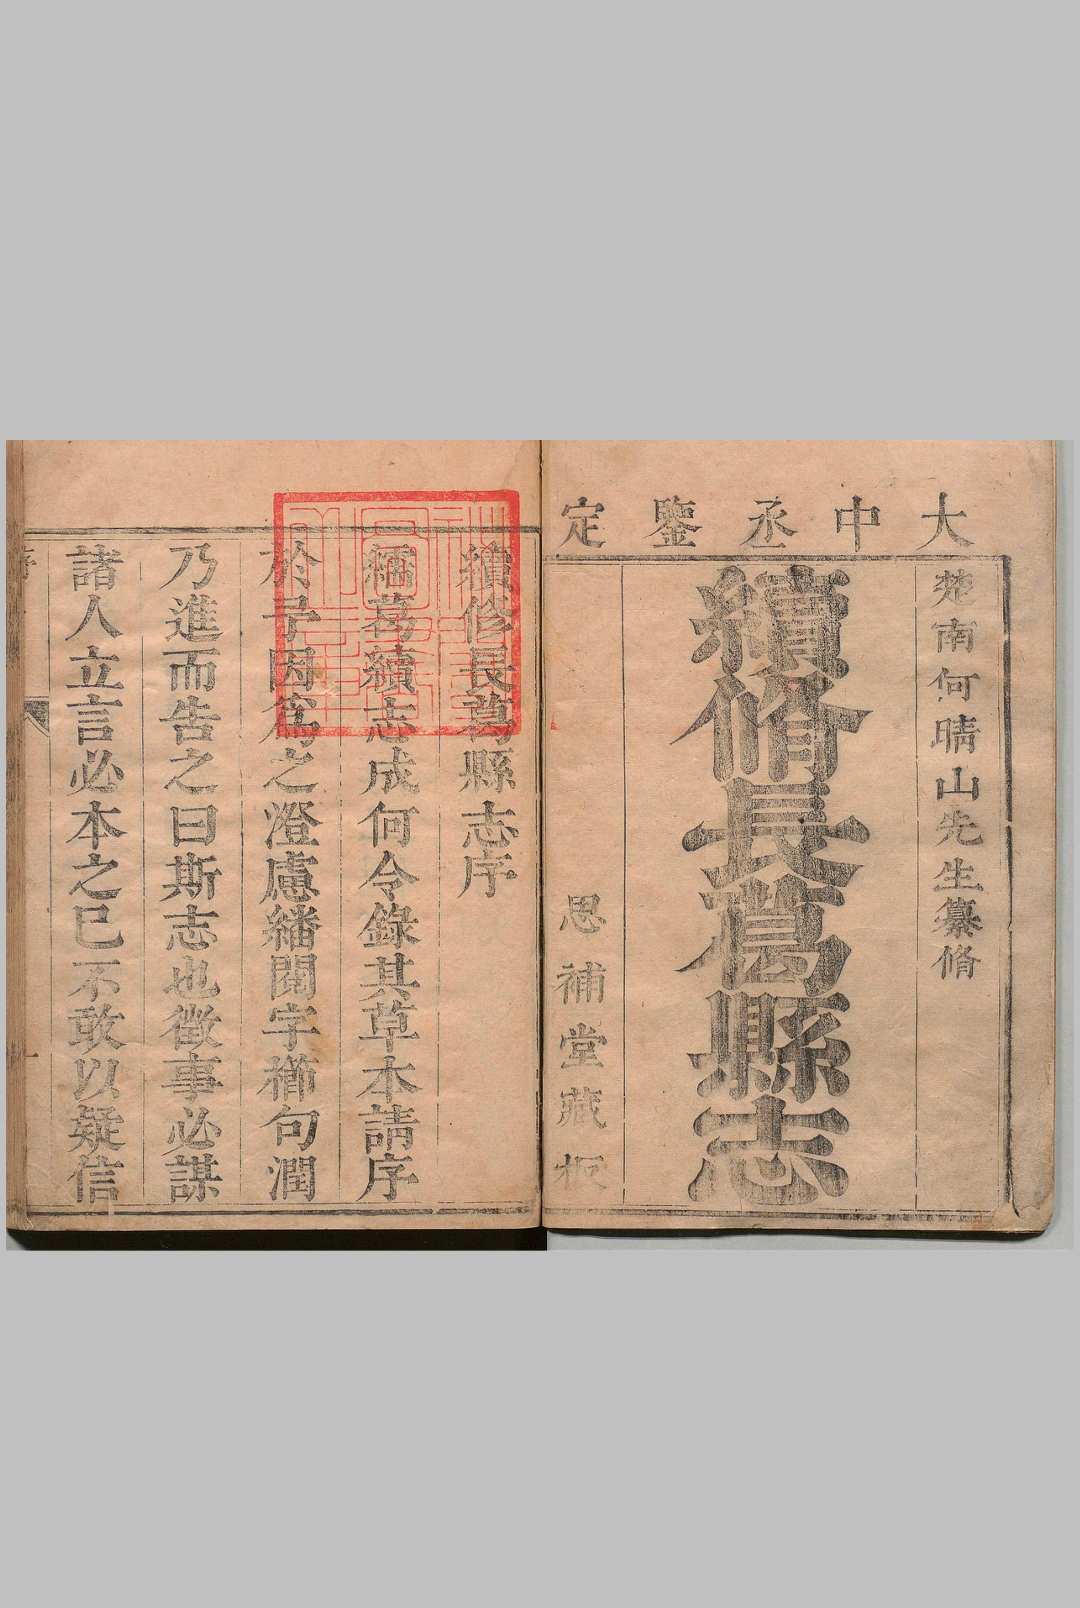 大中丞鑒定
楚南何晴山先生纂脩
續脩長葛縣志
思補堂藏板
續修長葛縣志序
繙葛續志成何令錄其草本請序
於予因爲之澄慮繙閱字櫛句潤
乃進而告之曰斯志也徵事必謀
諸人立言必本之已不敢以疑信